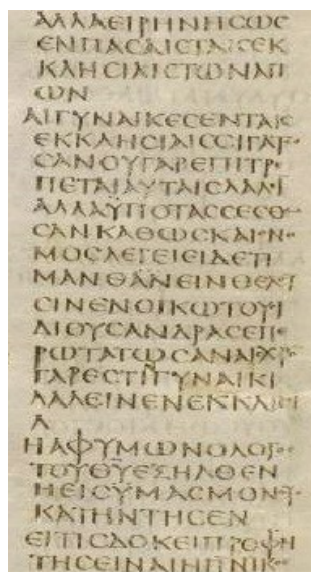 ΑΛΛΑΕΙΡΗΝΗΣΩΣ
ΕΝΠΑΣΑΙΣΤΑΙΣΕΚ
ΚΛΗΣΙΑΙΣΤΩΝΑΓΙ
ΩΝ
ΑΙΓΥΝΑΙΚΕΣΕΝΤΑΙΣ
ΕΚΚΛΗΣΙΑΙΣΣΙΓΑΤ
ΣΑΝΟΥΓΑΡΕΠΙΤΡΕ
ΠΕΤΑΙΑΥΤΑΙΣΛΑΛΙ
ΑΛΛΑΫΠΟΤΑΣΣΕΣΘΩ
ΣΑΝΚΑΘΩΣΚΑΙΟΝΟ
ΜΟΣΛΕΓΕΙΕΙΔΕΤΙ
ΜΑΝΘΑΝΕΙΝΘΕΛΟΥ
ΣΙΝΕΝΟΙΚΩΤΟΥΣΙ
ΔΙΟΥΣΑΝΔΡΑΣΕΠΕ
ΡΩΤΑΤΩΣΑΝΑΙΣΧΡΟ
ΓΑΡΕΣΤΙΓΥΝΑΙΚΙ
ΛΑΛΕΙΝΕΝΕΚΚΛΗΣΙ
Α
ΗΑΦΥΜΩΝΟΛΟΓΟΣ
ΤΟΥΘΥΕΞΗΛΘΕΝ
ΗΕΙΣΥΜΑΣΜΟΝΟΥΣ
ΚΑΤΗΝΤΗΣΕΝ
ΕΙΤΙΣΔΟΚΕΙΠΡΟΦΗ
ΤΗΣΕΙΝΑΙΗΠΝΙΚΟΣ